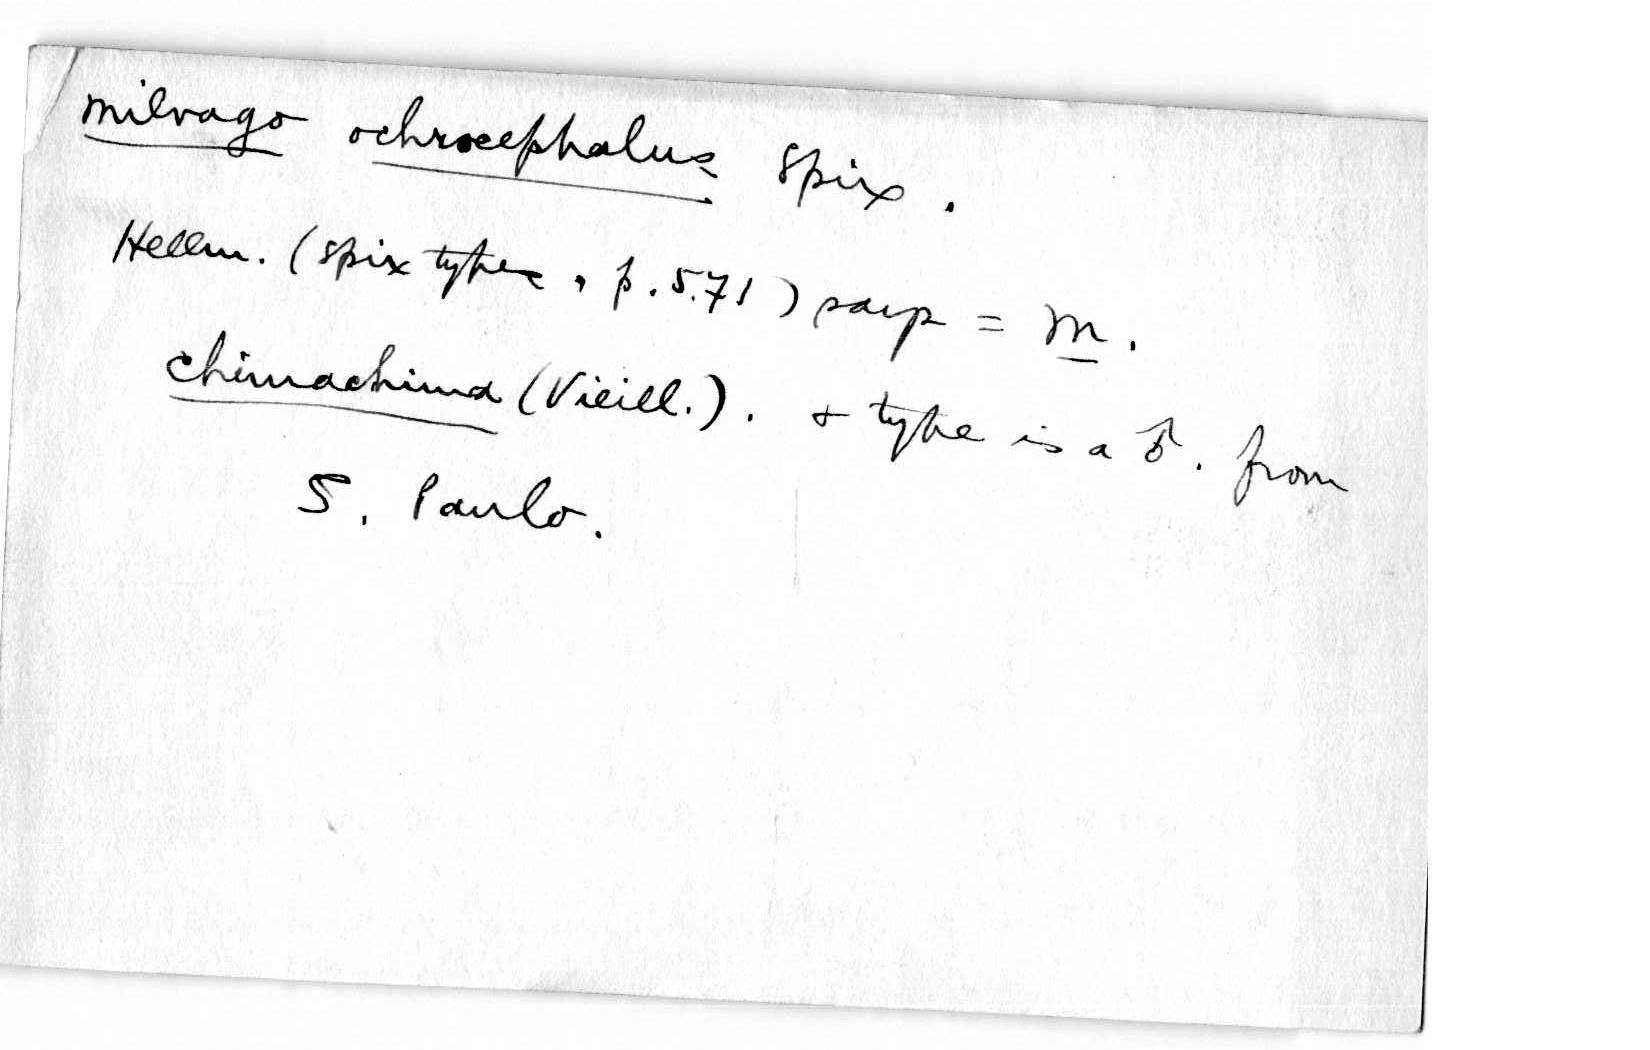 Milvago ochrocephalus Spix.
Hellm. (Spix types, p. 571) says = M.
chimachima (Vieill.). + type is a ♂. from
S. Paulo.